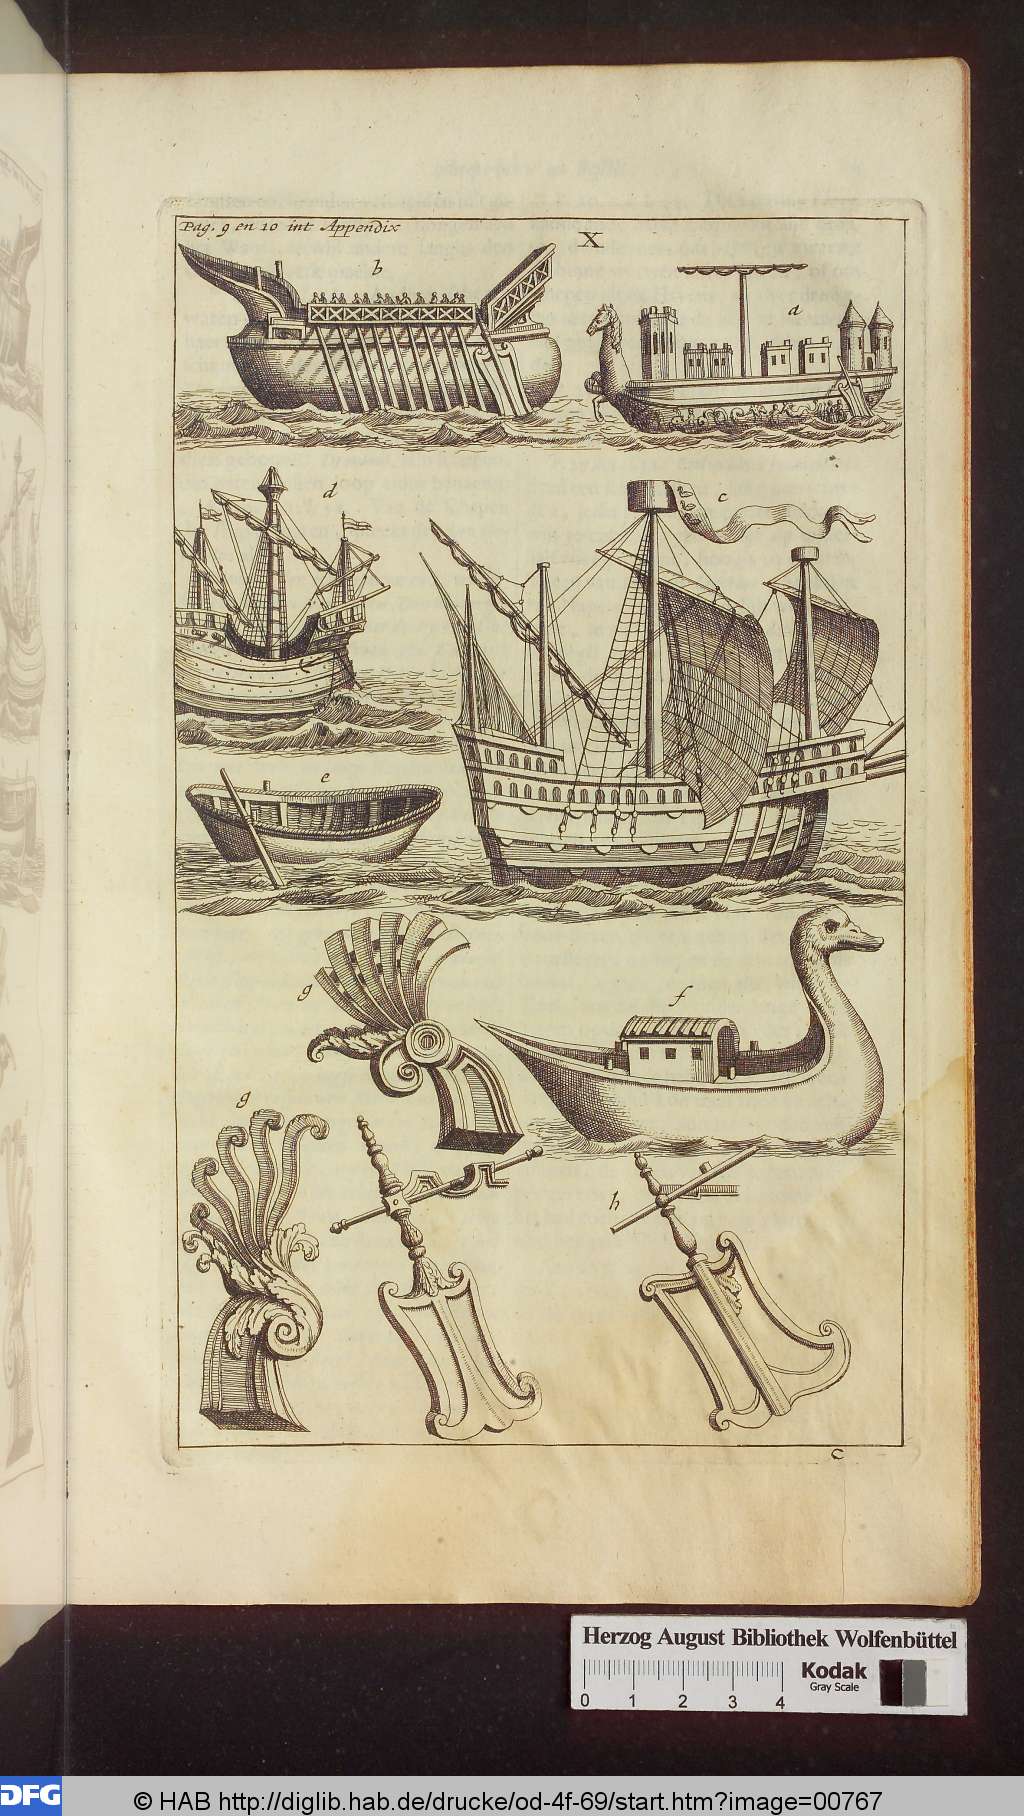 Pag. 9 en 10 int Appendix
X
b
a
d
c
e
g
f
g
h
C
Herzog August Bibliothek Wolfenbüttel
0 1 2 3 4
Kodak
Gray Scale
DFG
© HAB http://diglib.hab.de/drucke/od-4f-69/start.htm?image=00767